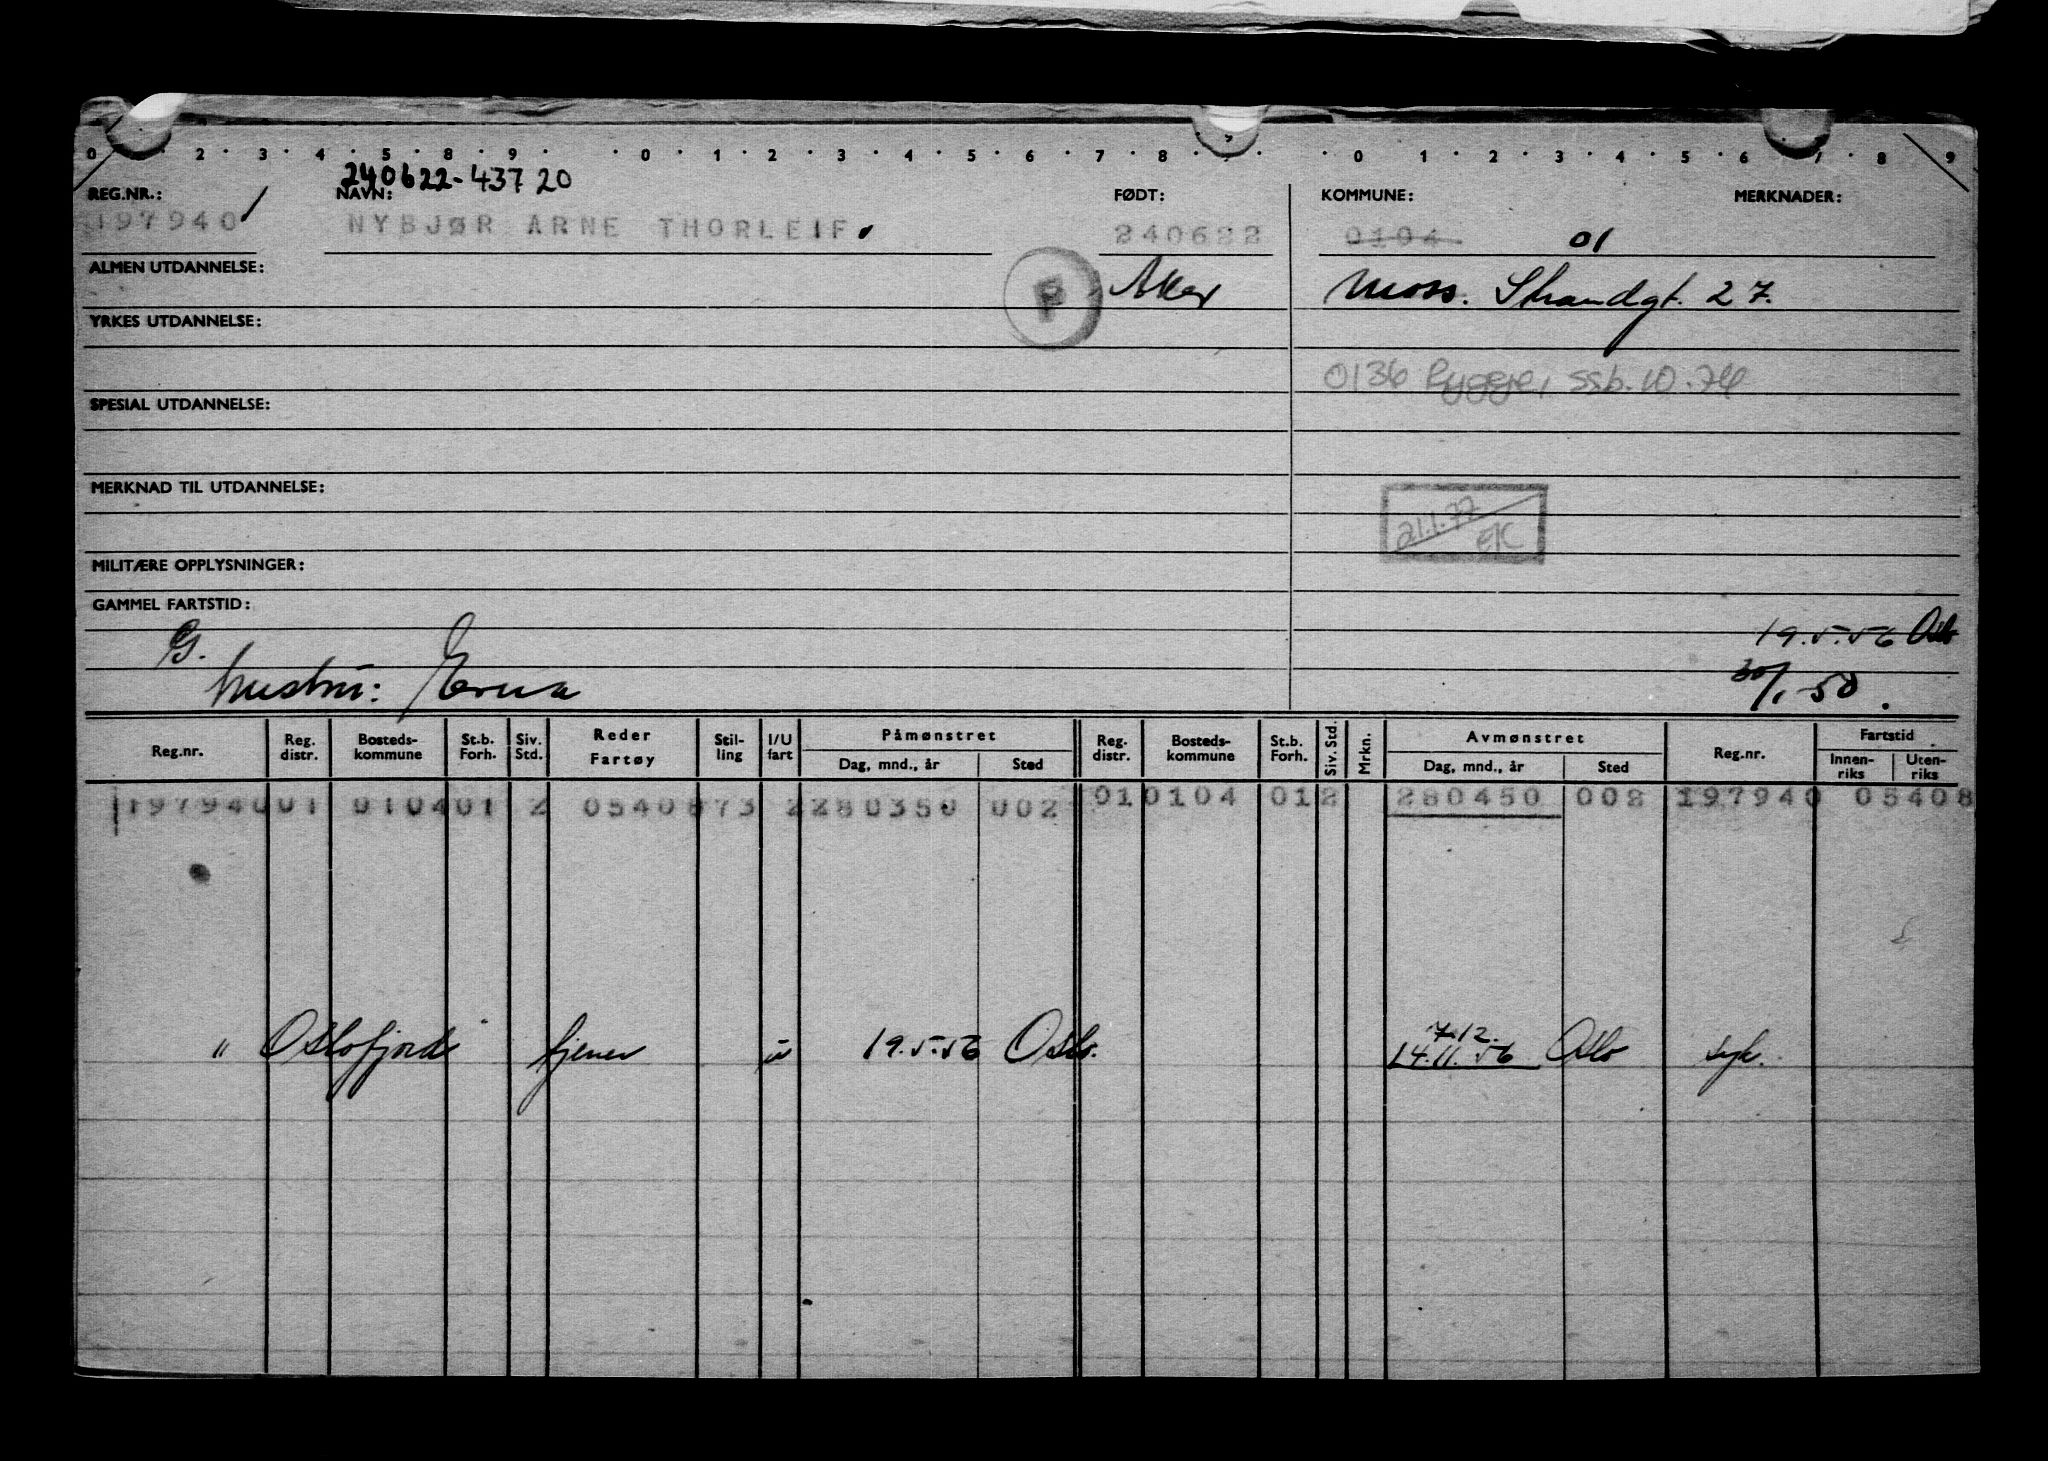 0 2 3 4 5 8 9 0 1 2 3 4 5 6 7 8 0 1 2 3 4 5 6 7 8 9
240622-43720
REG.NR.: NAVN: FØDT: KOMMUNE: MERKNADER:
197940 NYBJØR ARNE THORLEIF 240622 0104 01
ALMEN UTDANNELSE: Aker Moss. Strandgt. 27.
YRKES UTDANNELSE:
0136 Rygge, ssb. 10.74
SPESIAL UTDANNELSE:
MERKNAD TIL UTDANNELSE:
21.1.77
EK
MILITÆRE OPPLYSNINGER:
GAMMEL FARTSTID:
G. 19.5.56 Oslo
hustru: Erna 30/1-50.
Reg.nr. Reg. distr. Bosteds-kommune St.b. Forh. Siv. Std. Reder Fartøy Stil-ling I/U fart Påmønstret Dag, mnd., år Sted Reg. distr. Bosteds-kommune St.b. Forh. Siv. Std. Mrkn. Avmønstret Dag, mnd., år Sted Reg.nr. Fartstid Innen-riks Uten-riks
197940 01 0104 01 2 0540873 2 280350 002 01 0104 01 2 280450 002 197940 05408
7.12.
"Oslofjord" tjener u 19.5.56 Oslo. 14.11.56 Oslo syk.